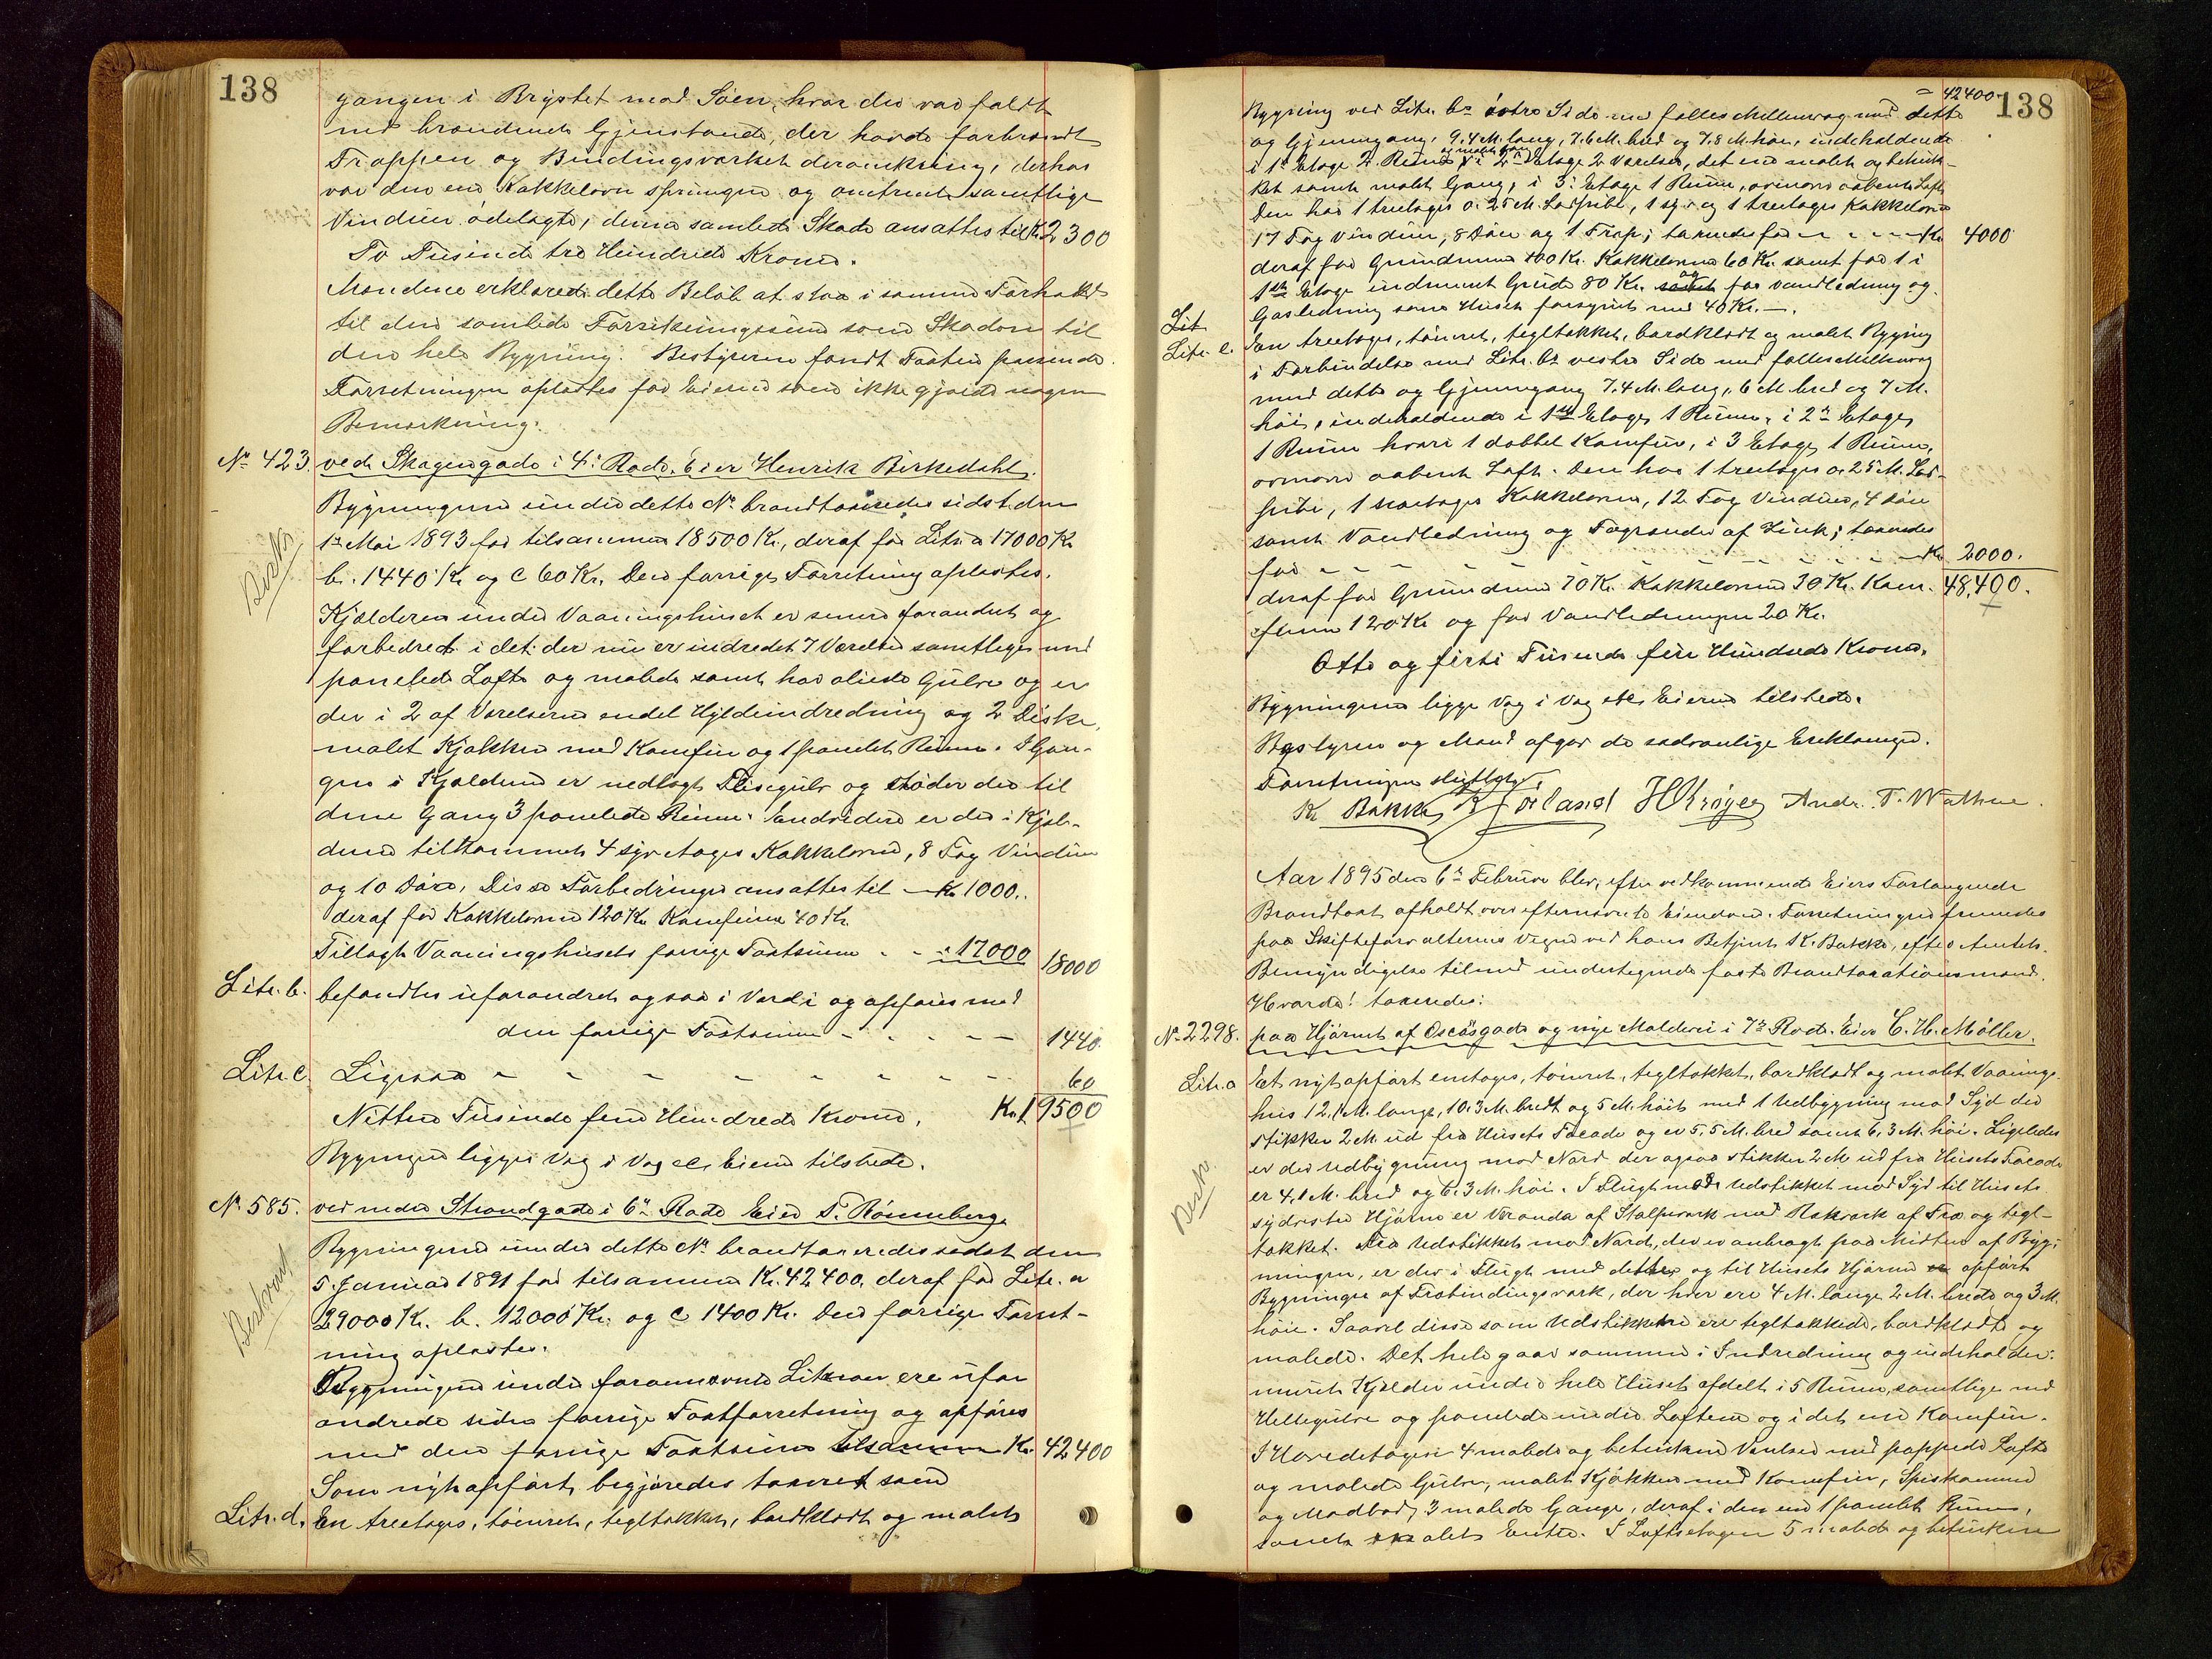 138
gangen i Brystet mod Söen, hvor der var faldt
ned brændende Gjenstande, der havde forbrændt
Trappen og Bindingsværket deromkring, derhos
var der en Kakkelovn sprungen og omtrent samtlige
Vinduer ödelagte, denne samlede Skade ansattes til Kr. 2300
To Tusinde tre Hundrede Kroner.
Mændene erklærede dette Belöb at staa i samme Forhold
til den samlede Forsikringssum som Skaden til
den hele Bygning. Bestyreren fandt Taxten passende.
Forretningen oplæstes for Eieren som ikke gjorde nogen
Bemærkning.
No 423. ved Skagengade i 4de Rode. Eier Henrik Birkedahl.
Bygningerne under dette No brandtaxeredes sidst den
1ste Mai 1893 for tilsammen 18500 Kr., deraf for Litr. a 17000 Kr
b. 1440 Kr og c 60 Kr. Den forrige Forretning oplæstes.
Kjælderen under Vaaningshuset er senere forandret og
forbedret i det der nu er indredet 7 Værelser samtlige med
panelede Lofte og malede samt har oliede Gulve og er
der i 2 af Værelserne endel Hyldeindredning og 2 Diske,
malet Kjökken med Komfur og 1 panelet Rum. I Gan-
gen i Kjælderen er nedlagt Flisegulv og stöder der til
denne Gang 3 panelede Rum. Endvidere er der i Kjæl-
deren tilkommet 4 syvetages Kakkelovne, 8 Fag Vinduer
og 10 Döre, Disse Forbedringer ansattes til - Kr. 1000.
deraf for Kakkelovnene 120 Kr. Komfuren 40 Kr.
Tillagt Vaaningshusets forrige Taxtsum - - " 17000 18000
Litr. b. befandtes uforandret ogsaa i Værdi og opföres med
den forrige Taxtsum - - - - 1440.
Litr. c. Ligesaa - - - - - - - 60
Nitten Tusinde fem Hundrede Kroner. Kr. 19500
Bygningen ligger Væg i Væg etc. Eieren tilstede.
No 585. ved nedre Strandgade i 6te Rode Eier T. Rönneberg.
Bygningerne under dette No brandtaxeredes sidst den
5. Januar 1891 for tilsammen Kr. 42400, deraf for Litr. a
29000 Kr. b. 12000 Kr. og c 1400 Kr. Den forrige Forret-
ning oplæstes.
Bygningerne under forannævnte Litraer ere ufor
andrede siden forrige Taxtforretning og opföres
med den forrige Taxtsum tilsammen Kr. 42400
Som nyt opfört, begjæredes taxeret som
Litr. d. En treetages, töimret, tegltækket, bordklædt og malet
138
= 42400
Bygning ved Litr. b's östre Side med fælles Mellemvæg med dette
og Gjennemgang, 9.4 M. lang, 7.6 M. bred og 7.8 M. höi, indeholdende
i 1ste Etage 2 Rum i 2den Etage 2 Værelser, det ene malet og betræk-
ket samt malet Gang, i 3de Etage 1 Rum, ovenover aabent Loft.
Den har 1 treetages a. 25 M. Ladpibe, 1 syv og 1 treetages Kakkelovn
17 Fag Vinduer, 8 Döre og 1 Trap; taxeredes for - - - - Kr 4000
deraf for Grundmuren 100 Kr. Kakkelovnene 60 Kr. samt for 1 i
1ste Etage indmuret Gryde 80 Kr. og for Vandledning og
Gasledning som Huset forsynet med 40 Kr. -.
Lit
Litr. e. En treetages, töimret, tegltækket, bordklædt og malet Bygning
i Forbindelse med Litr. b's vestre Side med fælles Mellemvæg
med dette og Gjennemgang 7.4 M. lang, 6 M. bred og 7 M.
höi, indeholdende i 1ste Etage 1 Rum, i 2den Etage
1 Rum hvori 1 dobbel Komfur, i 3 Etage 1 Rum,
ovenover aabent Loft. Den har 1 treetages a. 25 M. Lad-
pibe, 1 Kakkelovn, 12 Fag Vinduer, 4 Döre
samt Vandledning og Tagrender af Zink; taxeredes
for - - - - - - - - Kr 2000.
deraf for Grundmuren 70 Kr. Kakkelovnen 30 Kr. Kom- 48,400.
furen 120 Kr og for Vandledningen 20 Kr.
Otte og firti Tusinde fire Hundrede Kroner.
Bygningerne ligge Væg i Væg etc. Eieren tilstede.
Bestyrer og Mænd afgav de sædvanlige Erklæringer.
Forretningen sluttet.
K. Bakke K. Förland H Kröger Andr. T. Wathne.
Aar 1895 den 6te Februar blev, efter vedkommende Eiers Forlangende
Brandtaxt afholdt over efternævnte Eiendom. Forretningen fremmedes
paa Skifteforvalterens Vegne ved hans Betjent K. Bakke, efter Amtets
Bemyndigelse tilmed undertegnede faste Brandtaxationsmænd.
Hvorda! taxeredes:
No 2298. paa Hjörnet af Oscarsgade og nye Malderi i 7de Rode. Eier C. H. Möller.
Litr. a Et nyt opfört enetages, töimret, tegltækket, bordklædt og malet Vaanings-
hus 12.1 M. langt, 10.3 M. bredt og 5 M. höit med 1 Udbygning mod Syd der
stikker 2 M. ud fra Husets Facade og er 5.5 M. bred samt 6.3 M. höi. Ligeledes
er der Udbygning mod Nord der ogsaa stikker 2 M ud fra Husets Facade
er 4.1 M. bred og 6.3 M. höi. I Flugt med Udstikket mod Syd til Husets
sydvestre Hjörne er Veranda af Stolpeværk med Rækværk af Træ og tegl-
tækket. Fra Udstikket mod Nord, der er anbragt paa Midten af Byg-
ningen, er der i Flugt med dette og til Husets Hjörne opfört
Bygninger af Træbindingsværk, der hver ere 4 M. lange 2 M. brede og 3 M.
höie. Saavel disse som Udstikkerne ere tegltækkede, bordklædte og
malede. Det hele gaar sammen i Indredning og indeholder:
muret Kjælder under hele Huset afdelt i 5 Rum, samtlige med
Hellegulve og panelede under Loftene og i det ene Komfur.
I Hovedetagen 4 malede og betrukne Værelser med pappede Lofte
og malede Gulve, malet Kjökken med Komfur, Spiskammer
og Madbod, 3 malede Gange, deraf i den ene 1 panelet Rum,
samt malet Entre. I Loftsetagen 5 malede og betrukne